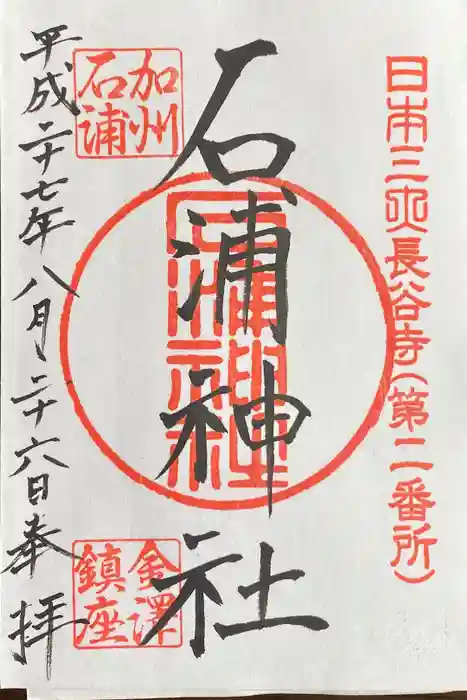 日本三大長谷寺(第二番所)
石浦神社
石浦神社
加州
石浦
金澤
鎮座
平成二十七年八月二十六日奉拝